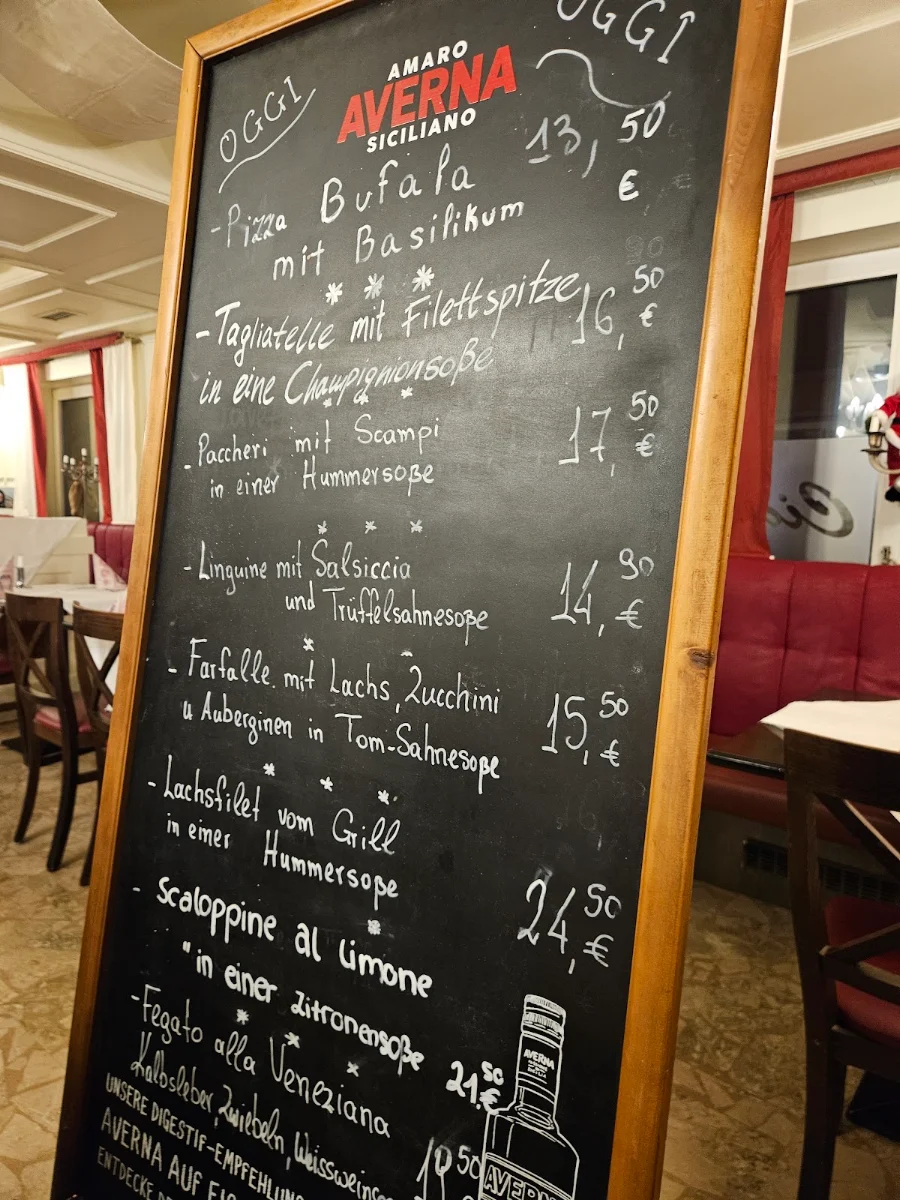 OGGI
OGGI
AMARO
AVERNA
SICILIANO
-Pizza Bufala 13,50 €
mit Basilikum
* * *
-Tagliatelle mit Filettspitze 16,50 €
in eine Champignionsoße
* * *
-Paccheri mit Scampi 17,50 €
in einer Hummersoße
* * *
-Linguine mit Salsiccia 14,90 €
und Trüffelsahnesoße
*
- Farfalle mit Lachs, Zucchini 15,50 €
u Auberginen in Tom-Sahnesoße
* * *
-Lachsfilet vom Grill
in einer Hummersoße 24,50 €
*
- Scaloppine al limone
"in einer Zitronensoße 21,50 €
* * *
-Fegato alla Veneziana
Kalbsleber, Zwiebeln, Weissweinsoße
50
UNSERE DIGESTIF-EMPFEHLUNG
AVERNA AUF
ENTDECKE
AVERNA
AVERNA